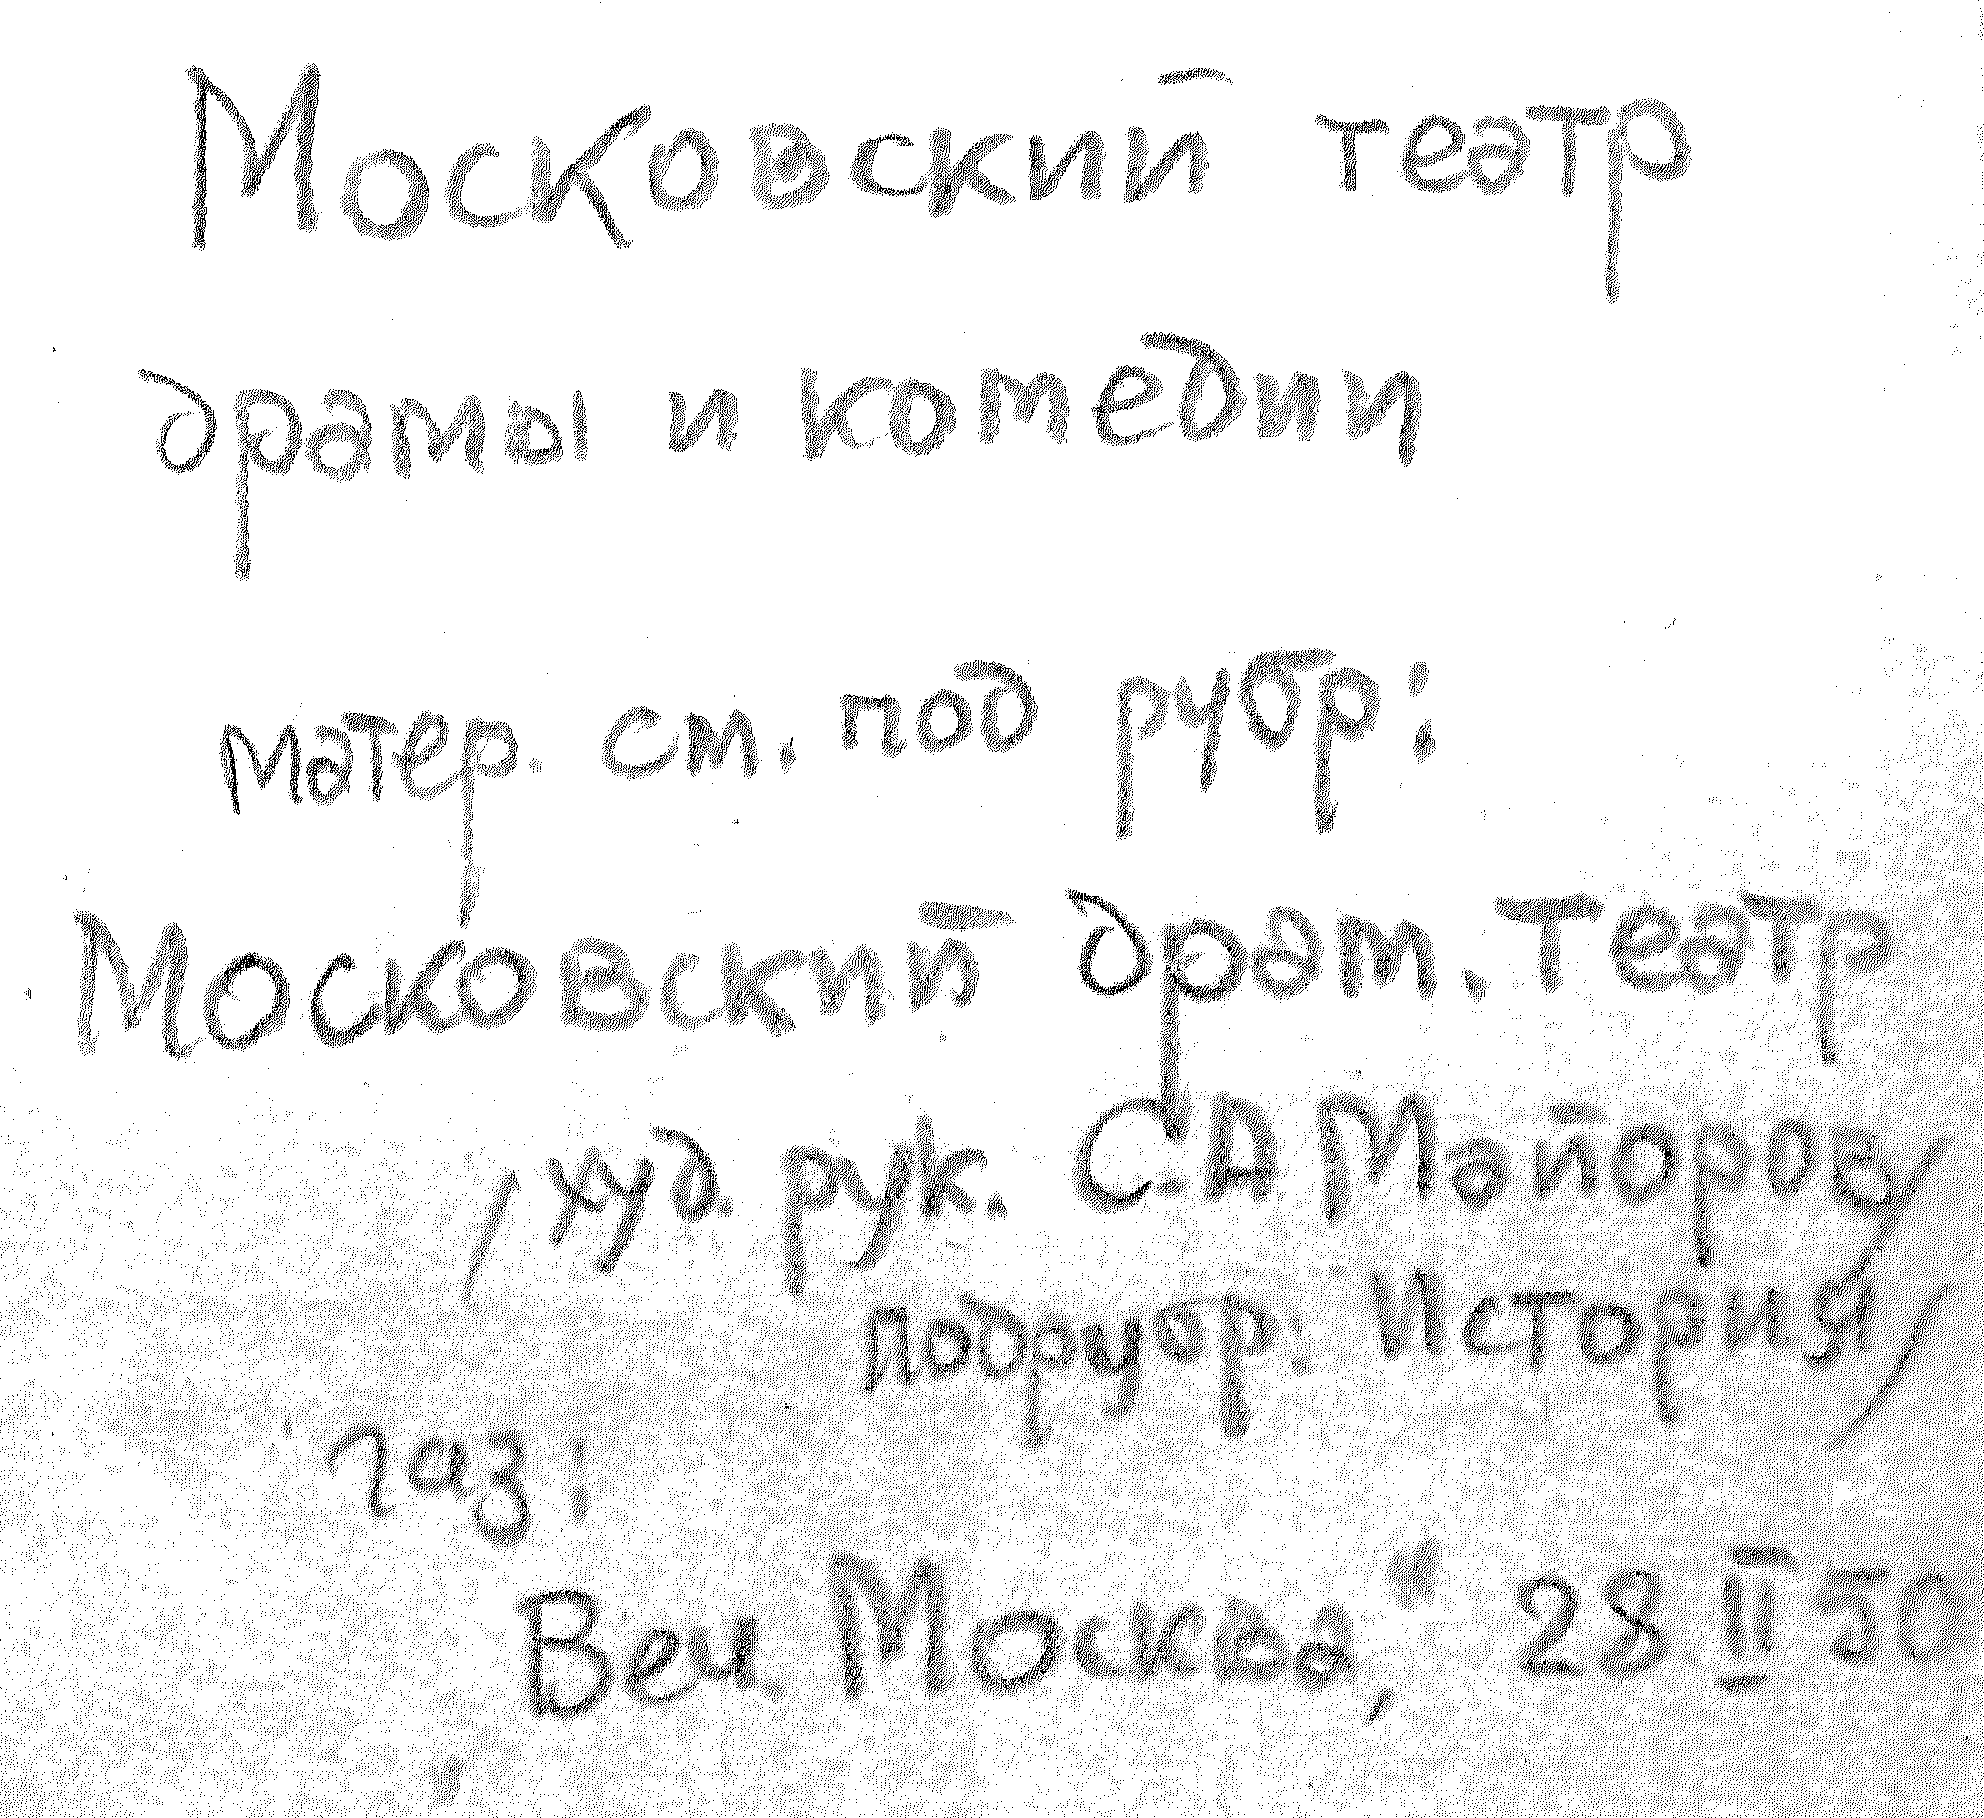 Московский театр
драмы и комедии
матер. см. под рубр:
Московский драм. театр
/худ. рук. С.А Майоров/
подрубр. История/
газ!
Веч. Москва," 28 II 50